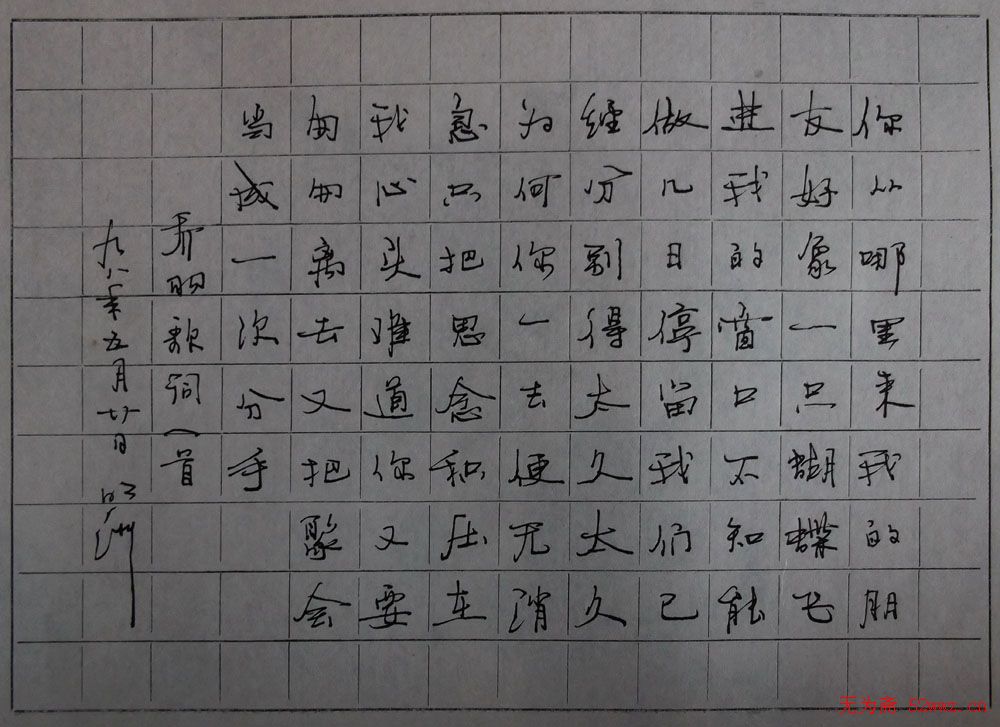 你从哪里来我的朋
友好像一只蝴蝶飞
进我的窗口不知能
做几日停留我们已
经分别得太久太久
为何你一去便无消
息只把思念积压在
我心头难道你又要
匆匆离去又把聚会
当成一次分手
乔羽歌词一首
九八年五月廿日
无为斋 52wwz.cn